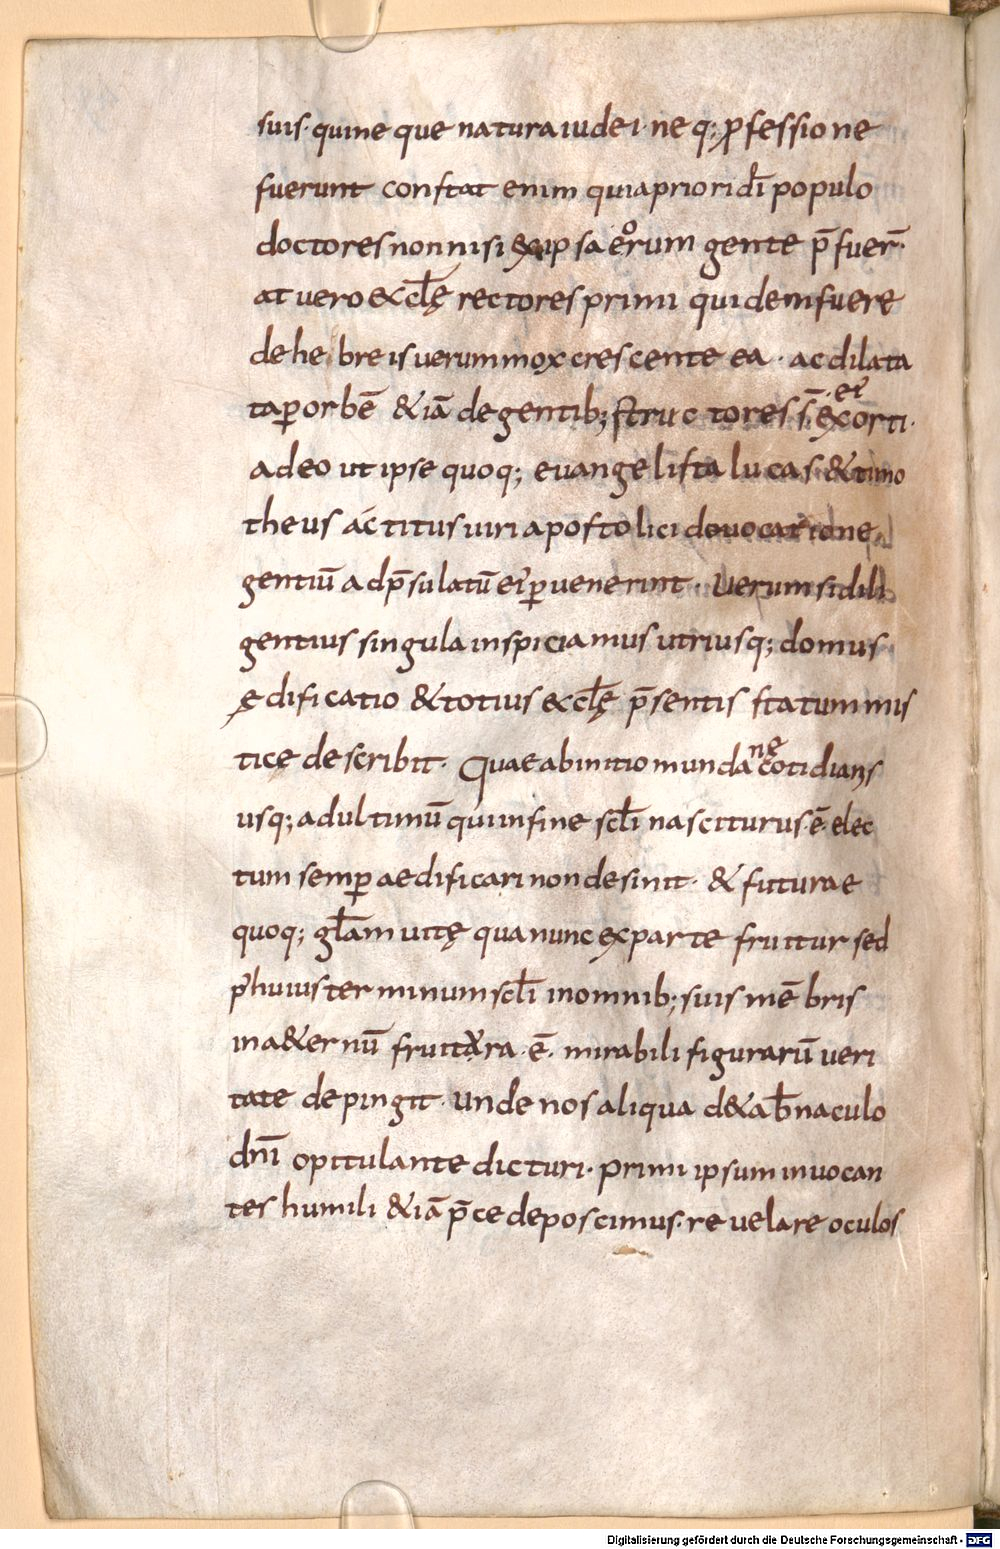 suis· quineque natura iudei· neq; ꝓfessione
fuerunt constat enim quia priori dī populo
doctores non nisi ex ipsa eorum gente p̄fuer̄·
at vero excłę rectores primi quidem fuere
de hebreis verum mox crescente ea · ac dilata
ta ꝑ orbē &iā de gentib; structores s̄· ei exorti·
adeo ut ipse quoq; evangelista lucas· & timo
theus ac titus viri apostolici de vocatione
gentiū ad p̄sulatū ei ꝑvenerint· Verum si dili
gentius singula inspiciamus utriusq; domus
ędificatio & totius excłę p̄sentis statum mis
tice describit· Quae ab initio mundanę cotidianis
usq; ad ultimū qui in fine scłi nasciturus· ē· elec
tum semꝑ aedificari non desinit· & futurae
quoq; głam vitę qua nunc ex parte fruitur sed
p̓ huius terminum scłi in omnib; suis mēbris
in a&ernū fruitura· ē· mirabili figurarū veri
tate depingit· Unde nos aliqua de tab̄naculo
dn̄i opitulante dicturi· primi ipsum invocan
tes humili &iā p̄ce deposcimus· revelare oculos
Digitalisierung gefördert durch die Deutsche Forschungsgemeinschaft - DFG